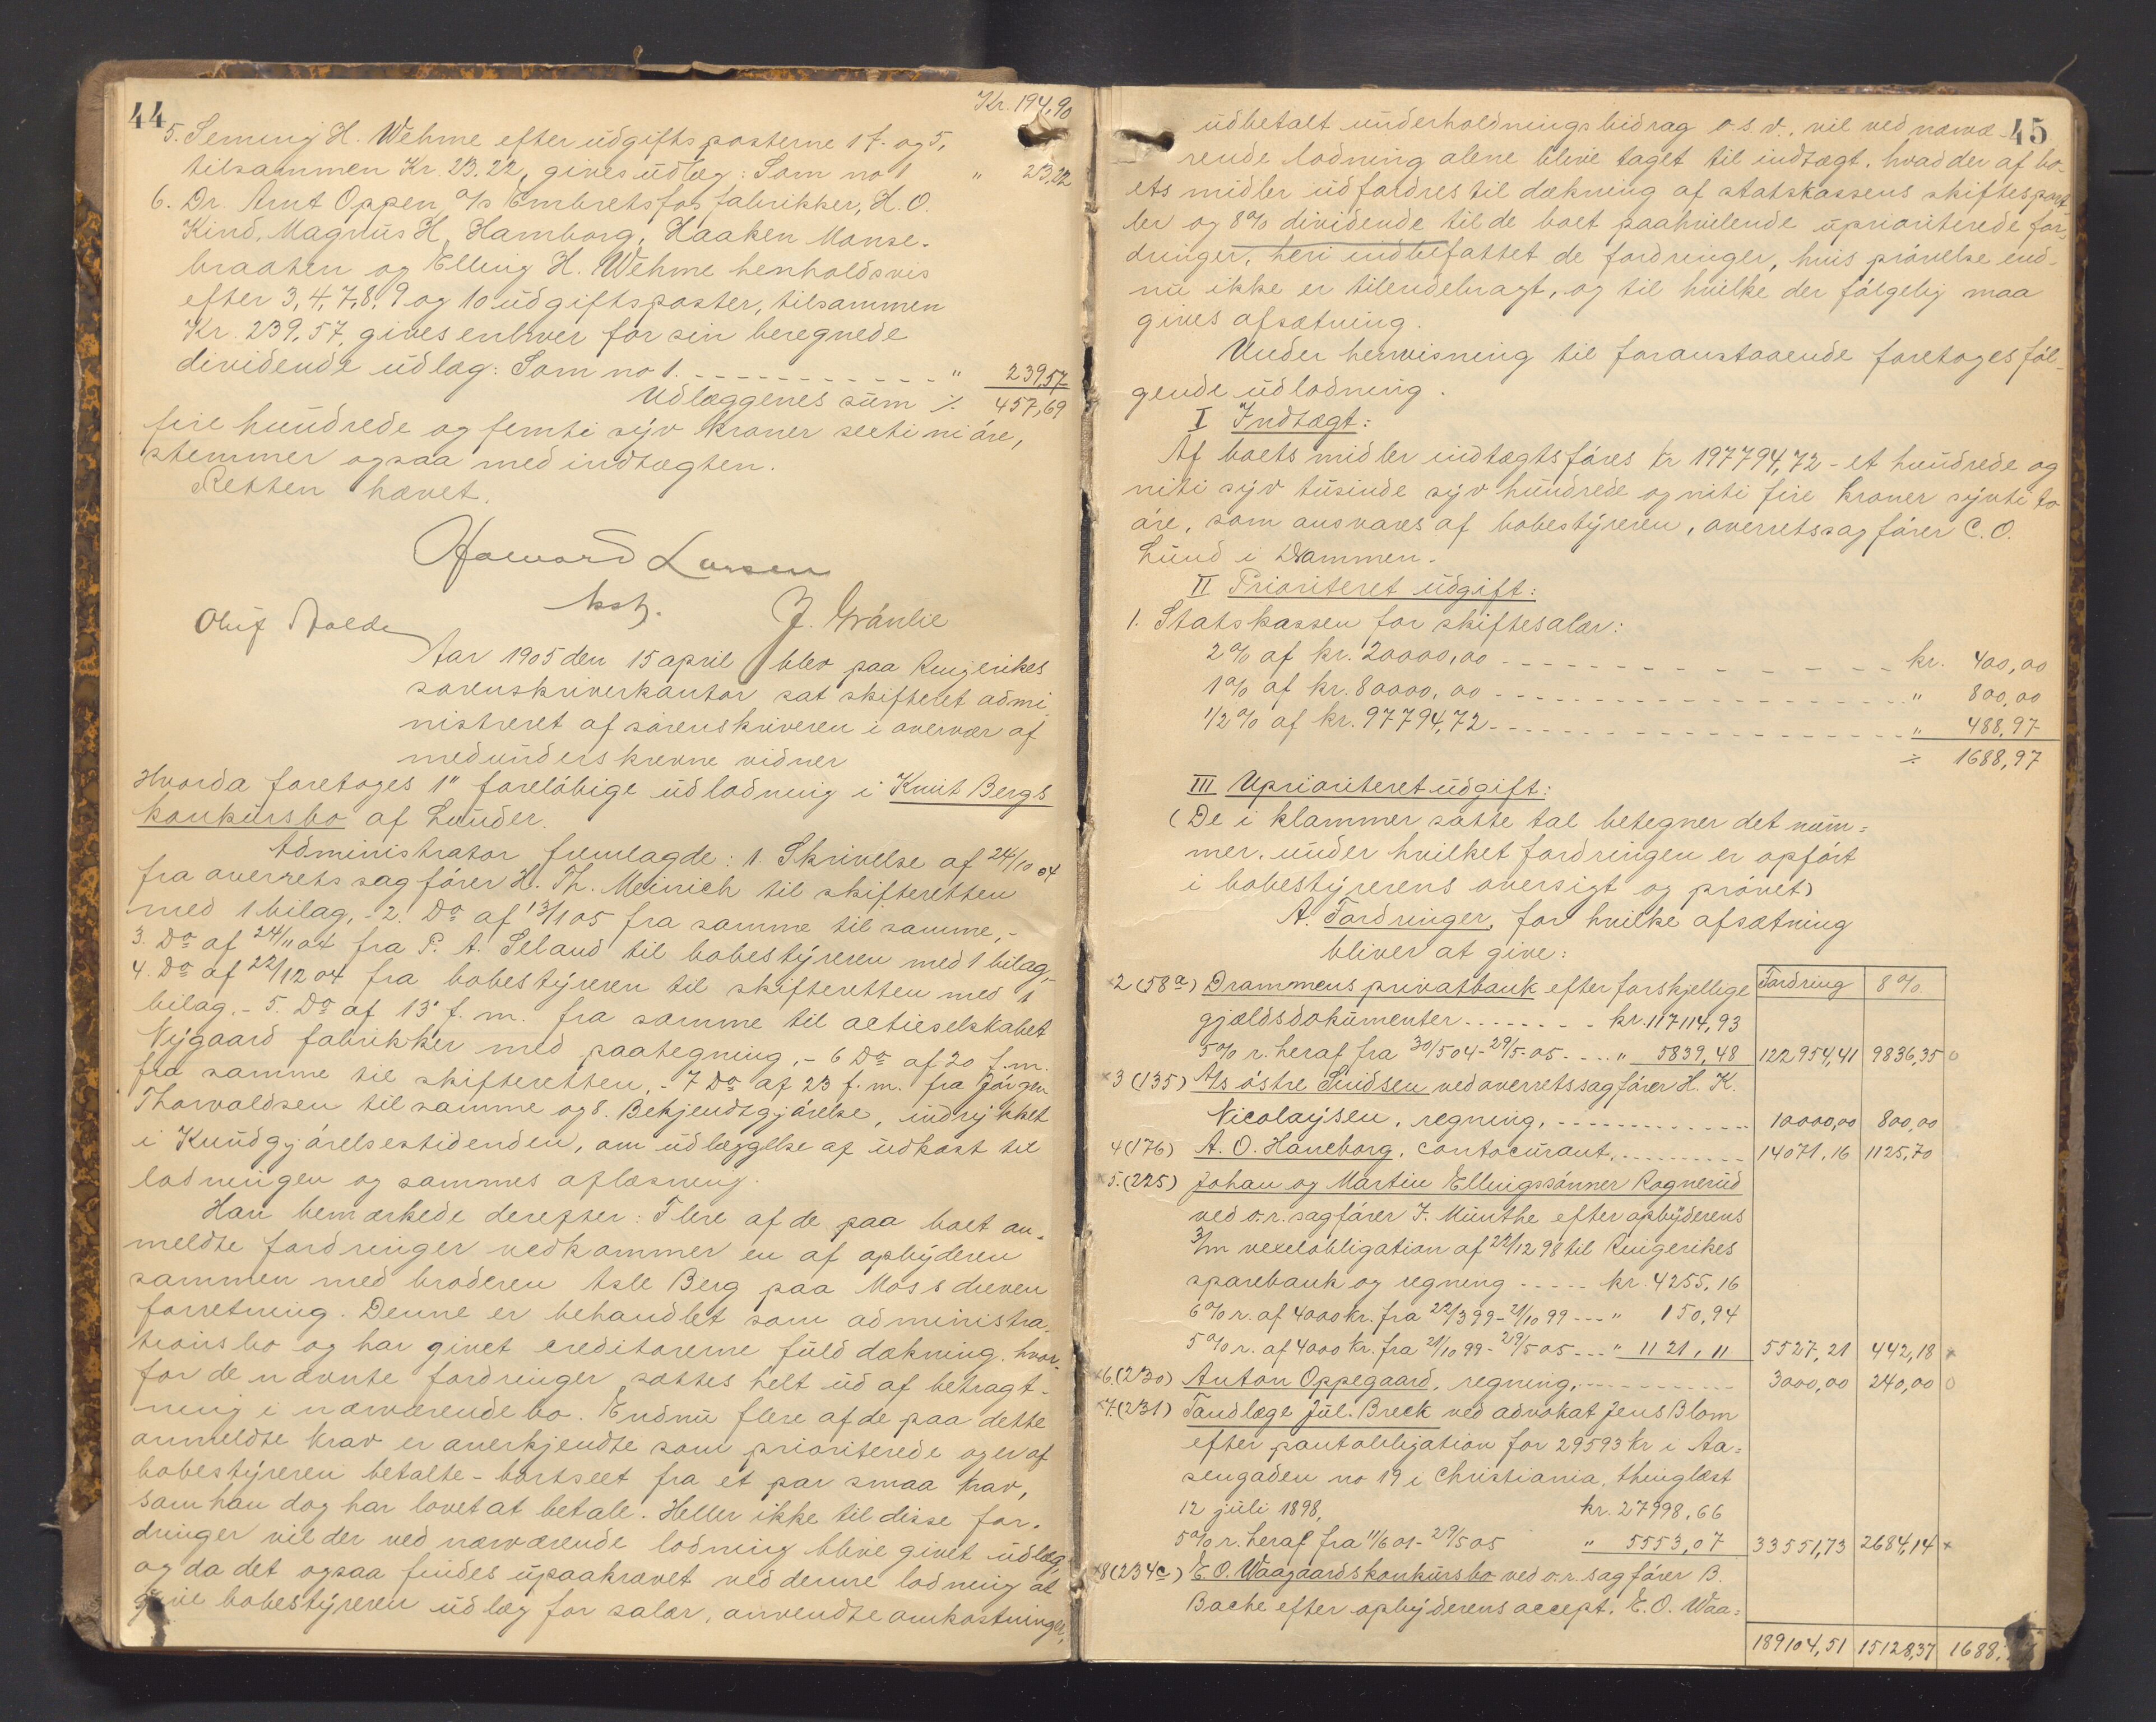 44
Kr. 194,90
5. Seming H. Wehme efter udgiftsposterne 1 f. og 5,
tilsammen Kr. 23.22, gives udlæg: Som no 1 " 23,22
6. Dr. Arnt Oppen, A/s Embretsfos fabrikker, H. O.
Kind, Magnus H. Hamborg, Haaken Monse-
braaten og Elling H. Wehme henholdsvis
efter 3, 4, 7, 8, 9 og 10 udgiftsposter, tilsammen
Kr. 239,57, gives enhver for sin beregnede
dividende udlæg: Som no 1. - - - - - - - - - - - " 239,57
Udlæggenes sum ÷ 457,69
fire hundrede og femti syv kroner sexti ni øre,
stemmer ogsaa med indtægten.
Retten hævet.
Haavard Larsen
kst.
Oluf Nolde
J. Grønlie
Aar 1905 den 15 april blev paa Ringerikes
sorenskriverkontor sat skifteret admi-
nistreret af sorenskriveren i overvær af
medunderskrevne vidner
Hvorda foretoges 1ste foreløbige udlodning i Knut Bergs
konkursbo af Lunder.
Administrator fremlagde: 1. Skrivelse af 24/10 04
fra overretssagfører H. Th. Meinich til skifteretten
med 1 bilag, - 2. Do af 13/1 05 fra samme til samme, -
3. Do af 24/11 04 fra P. A. Seland til bobestyreren med 1 bilag, -
4. Do af 22/12 04 fra bobestyreren til skifteretten med 1
bilag. - 5. Do af 13' f. m. fra samme til actieselskabet
Nygaard fabrikker med paategning, - 6 Do af 20 f. m.
fra samme til skifteretten, - 7 Do af 23 f. m. fra Jørgen
Thorvaldsen til samme og 8. Bekjendtgjørelse, indrykket
i Kundgjørelsestidenden, om udlæggelse af udkast til
lodningen og sammes aflæsning.
Han bemærkede derefter: Flere af de paa boet an-
meldte fordringer vedkommer en af opbyderen
sammen med broderen Asle Berg paa Moss dreven
forretning. Denne er behandlet som administra-
tionsbo og har givet creditorerne fuld dækning, hvor-
for de nævnte fordringer sættes helt ud af betragt-
ning i nærværende bo. Endnu flere af de paa dette
anmeldte krav er anerkjendte som prioriterede og er af
bobestyreren betalte - bortseet fra et par smaa krav,
som han dog har lovet at betale. Heller ikke til disse for-
dringer vil der ved nærværende lodning blive givet udlæg,
og da det ogsaa findes upaakrævet ved denne lodning at
give bobestyreren udlæg for salær, anvendte omkostninger,
45
udbetalt underholdningsbidrag o. s. v., vil ved nærvæ-
rende lodning alene blive taget til indtægt, hvad der af bo-
ets midler udfordres til dækning af statskassens skiftespor-
ler og 8% dividende til de boet paahvilende uprioriterede for-
dringer, heri indbefattet de fordringer, hvis prøvelse end-
nu ikke er tilendebragt, og til hvilke der følgelig maa
gives afsætning.
Under henvisning til foranstaaende foretoges føl-
gende udlodning.
I Indtægt:
Af boets midler indtægtsføres kr 197794,72 - et hundrede og
niti syv tusinde syv hundrede og niti fire kroner sytti to
øre, som ansvares af bobestyreren, overretssagfører C. O.
Lund i Drammen.
II Prioriteret udgift:
1. Statskassen for skiftesalær:
2% af kr. 20000,00 - - - - - - - - - - - kr. 400,00
1% af kr. 80000,00 - - - - - - - - - - - " 800,00
1/2% af kr. 97794,72 - - - - - - - - - - - " 488,97
÷ 1688,97
III Uprioriteret udgift:
(De i klammer satte tal betegner det num-
mer, under hvilket fordringen er opført
i bobestyrerens oversigt og prøvet)
A. Fordringer, for hvilke afsætning
bliver at give:
Fordring 8%
×2 (58a) Drammens privatbank efter forskjellige
gjældsdokumenter - - - - - - - kr. 117114,93
5% r. heraf fra 30/5 04 - 29/5 05 - - - " 5839,48 122954,41 9836,35 o
×3 (135) A/s østre Snidsen ved overretssagfører H. K.
Nicolaysen, regning, - - - - - - - - - - 10000,00 800,00
4 (176) A. O. Haneborg, contocurant, - - - - - - - 14071,16 1125,70
×5. (225) Johan og Martin Ellingssønner Rognerud
ved o.r. sagfører F. Münthe efter opbyderens
3/m vexelobligation af 22/12 98 til Ringerikes
sparebank og regning - - - - - kr. 4255,16
6% r. af 4000 kr. fra 22/3 99 - 21/10 99 - - - " 150,94
5% r. af 4000 kr. fra 21/10 99 - 29/5 05 - - - " 1121,11 5527,21 442,18 ×
×6. (230) Anton Oppegaard, regning, - - - - - - - - 3000,00 240,00 o
×7. (231) Tandlæge Jul. Breck ved advokat Jens Blom
efter pantobligation for 29593 kr i Aa-
sengaden no 19 i Christiania, thinglæst
12 juli 1898, kr. 27998,66
5% r. heraf fra 11/6 01 - 29/5 05 " 5553,07 33551,73 2684,14 ×
×8 (234c) E. O. Waagaards konkursbo ved o.r. sagfører B.
Bache efter opbyderens accept, E. O. Waa-
189104,51 15128,37 1688,